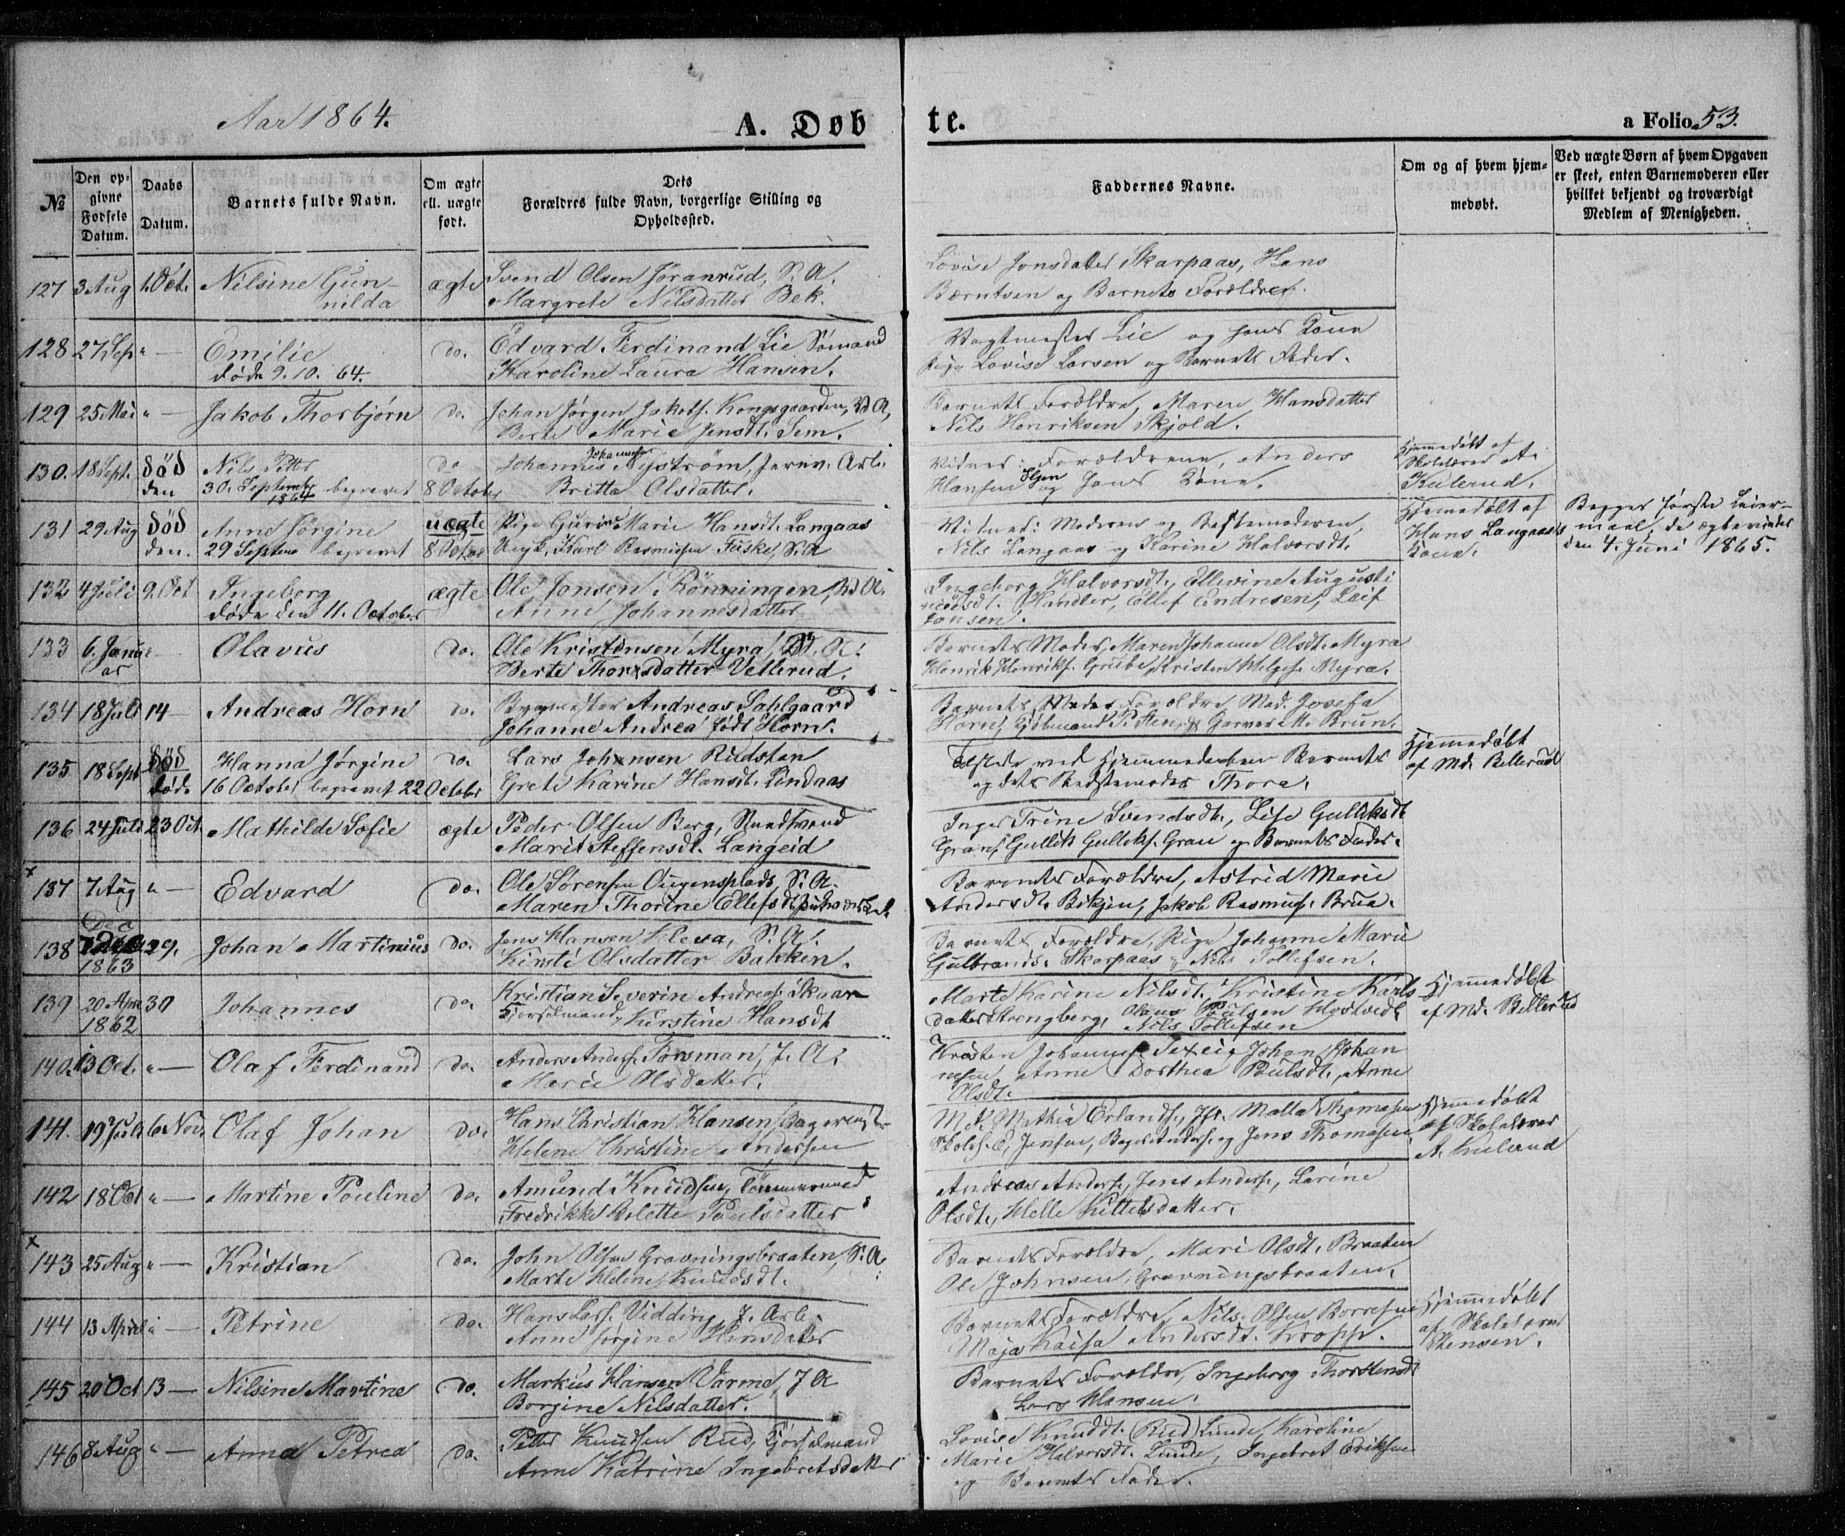 Aar 1864.
A. Døbte.
a Folio 53.
№
Den opgivne Fødsels Datum.
Daabs Datum.
Barnets fulde Navn.
Om ægte ell. uægte født.
Dets Forældres fulde Navn, borgerlige Stilling og Opholdssted.
Faddernes Navne.
Om og af hvem hjemmedøbt.
Ved uægte Børn af hvem Opgaven er skeet, enten Barnemoderen eller hvilket bekjendt og troværdigt Medlem af Menigheden.
127 3 Aug 1. Oct. Nilsine Gunnilda ægte Svend Olsen Jøranrud, S. A.
Margrete Nilsdatter Bek.
Lovise Jonsdatter Skarpaas, Hans
Bærntsen og Barnets Forældre.
128 27 Sep " — Emilie do. Edvard Ferdinand Lie Sømand
døde 9. 10. 64. Karoline Laura Hansen.
Vagtmester Lie og hans Kone
Pige Lovise Larsen og Barnets Fader.
129 25 Mai " — Jakob Thorbjørn do. Johan Jørgen Jakobs. Kongsgaarden,
Berte Marie Jensdt. Sem.
Barnets Forældre, Maren Hansdatter
Nils Henriksen Skjold.
130. 18 Sept. død Nils Petter do Johannes Johannesen Nyström, Jernv. Arb.
den 30. September 1864 begravet 8 October Britta Olsdatter.
Vidner: Forældrene, Anders
Hansen og hans Kone.
Hjemmedøbt af
Skolelærer A.
Kulerud.
131 29 Aug død Anne Jørgine uægte Pige Gurine Marie Hansdt. Langaas
den. 29 Septemb begravet 8 October Ungk. Karl Rasmussen Fiske, S. A
Vidner: Moderen og Bestemoderen,
Nils Langaas og Karine Halvorsdt.
Hjemmedøbt af
Hans Langaas's
Kone.
Begges første Leiermaal, de ægteviedes
den 4. Juni 1865.
132 4 Juli 9. Oct Ingeborg ægte Ole Jonsen Rønningen,
døde den 11. October Anne Johannesdatter
Ingeborg Halvorsdt., Ellevine Augusti
Handler, Ellef Endresen, Leif
Jonsen.
133 6. Januar Olavus do. Ole Kristensen Myra,
Berte Thorsdatter Vellerud.
Barnets Moder, Maren Johanne Olsdt. Myra
Henrik Henriks. Grube, Kristen Helges. Myra.
134 18 Juli 14 — Andreas Horn do. Brygmester Andreas Dahlgaard
Johanne Andrea født Horn.
Barnets Moders Forældre, Mad. Josefa
Horn, Kjøbmand og Garver M. Brun.
135 18 Sept død Hanna Jørgine do. Lars Johansen Rudsten
døde 16 October begravet 22 October Grete Karine Hansdt. Lindaas
Tilstede ved Hjemmedaaben Barnets
og dets Bedstemoder Thora.
Hjemmedøbt
af Md. Bellerud
136 24 Juli 23 Oct. Mathilde Sofie ægte Peder Olsen Berg, Rundtrand
Marit Steffensdt. Langeid
Inger Trine Svendsdt., Lise Gulliksdt
Gran, Gullik Gulliks. Gran og Barnets Fader.
x
137 7 Aug " — Edvard do. Ole Sørensen Augensplads, S. A.
Maren Thorine Ellefsdt
Barnets Forældre, Astrid Marie
Andersdt. Bøkjen, Jakob Rasmus. Brua.
138 Dec 1863 29. Johan Martinius do. Jens Hansen Kleva, S. A.
Kirsti Olsdatter Bakken.
Barnets Forældre, Pige Johanne Marie
Gulbrands. Skarpaas, Nils Tollefsen.
139 20 Apr 1862 30 Johannes do. Kristian Severin Andreas. Skaar
Kjørselmand, Kirstine Hansdt
Marte Karine Nilsdt. Kristine Karls
datter Strengberg, Olaus Paulsen Hostvedt
Nils Tollefsen
Hjemmedøbt
af Md. Bellerud
140. 13 Oct. " — Olaf Ferdinand do. Anders Anders. Forsman, J. A.
Marie Olsdatter.
Kristen Johannes. Texel, Johan Johan
nesen, Anne Dorthea Paulsdt., Anne
Olsdt.
141. 19 Juli 6. Nov. Olaf Johan do. Hans Christian Hansen, Bagersv.
Helene Christine Andersen
Md. Mathea Ørlands., Jfr. Malla Thomasen
C. Jensen, Bager Anders. og Jens Thomasen.
Hjemmedøbt
af Skolelærer
A. Kulerud
142 18 Oct " — Martine Pouline do. Amund Knudsen, Tømmermand
Fredrikke Arlette Poulsdatter
Andreas Anders., Jens Anders., Larine
Olsdt., Helle Kittelsdatter.
x
143 25 Aug " — Kristian do. John Olsen Gravningsbraaten, S. A
Marte Heline Knudsdt.
Barnets Forældre, Mari Olsdt. Braaten
Ole Johnsen Gravningsbraaten.
144 13 April " — Petrine do. Hans Lars. Vidding, J. Arb.
Anne Jørgine Hansdatter
Barnets Forældre, Nils Olsen Borresen
Maja Kaisa Andersdt. Kropp.
Hjemmedøbt
af Skolelærer
Stensen.
145 20 Oct 13 — Nilsine Martine do. Markus Hansen Varme, J A
Borgine Nilsdatter.
Barnets Forældre, Ingeborg Thorstensdt
Lars Hansen.
146 8 Aug " — Anna Petrea do. Petter Knudsen Rud, Kjørselmand
Anne Katrine Ingebretsdatter
Lovise Knudsdt. (Rud) Lunde, Karoline
Marie Halvorsdt. Lunde, Ingebret Eriksen
og Barnets Fader.